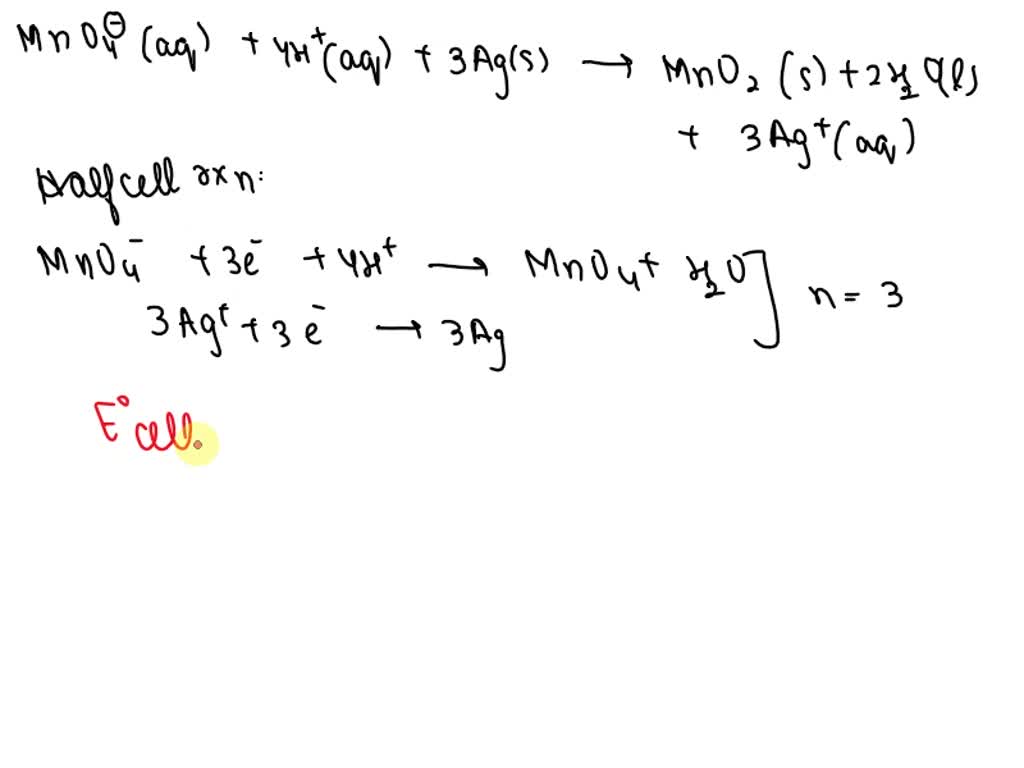 MnO₄⊖ (aq) + 4H⁺(aq) + 3Ag(s) → MnO₂ (s) + 2H₂O(l)
+ 3Ag⁺(aq)
Half cell rxn:
MnO₄⁻ + 3e⁻ + 4H⁺ → MnO₄ + H₂O ] n = 3
3Ag⁺ + 3e⁻ → 3Ag
E° cell